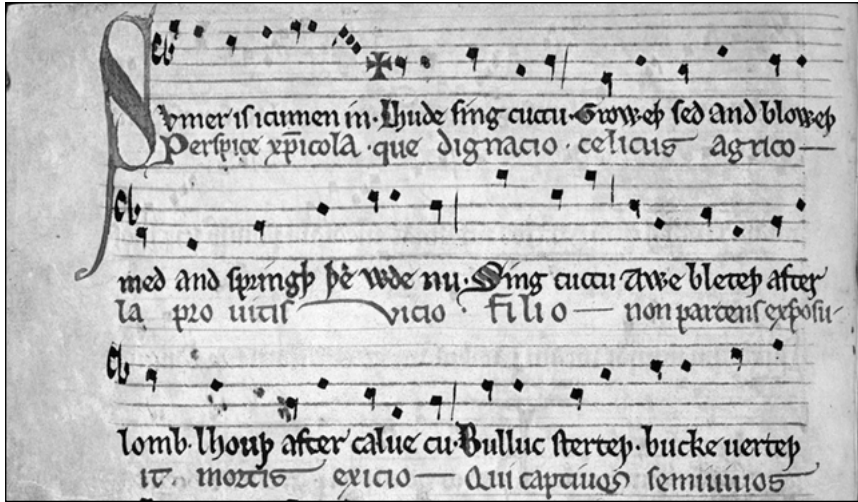 Svmer is icumen in · Lhude sing cuccu · Groweþ sed and bloweþ
Perspice xp̅icola · que dignacio · celicus agrico —
med and springþ þe wde nu · Sing cuccu Awe bleteþ after
la pro uitis vicio · filio — non parcens exposu-
lomb · lhouþ after calue cu · Bulluc sterteþ · bucke uerteþ
it mortis exicio — Qui captiuos semiuiuos